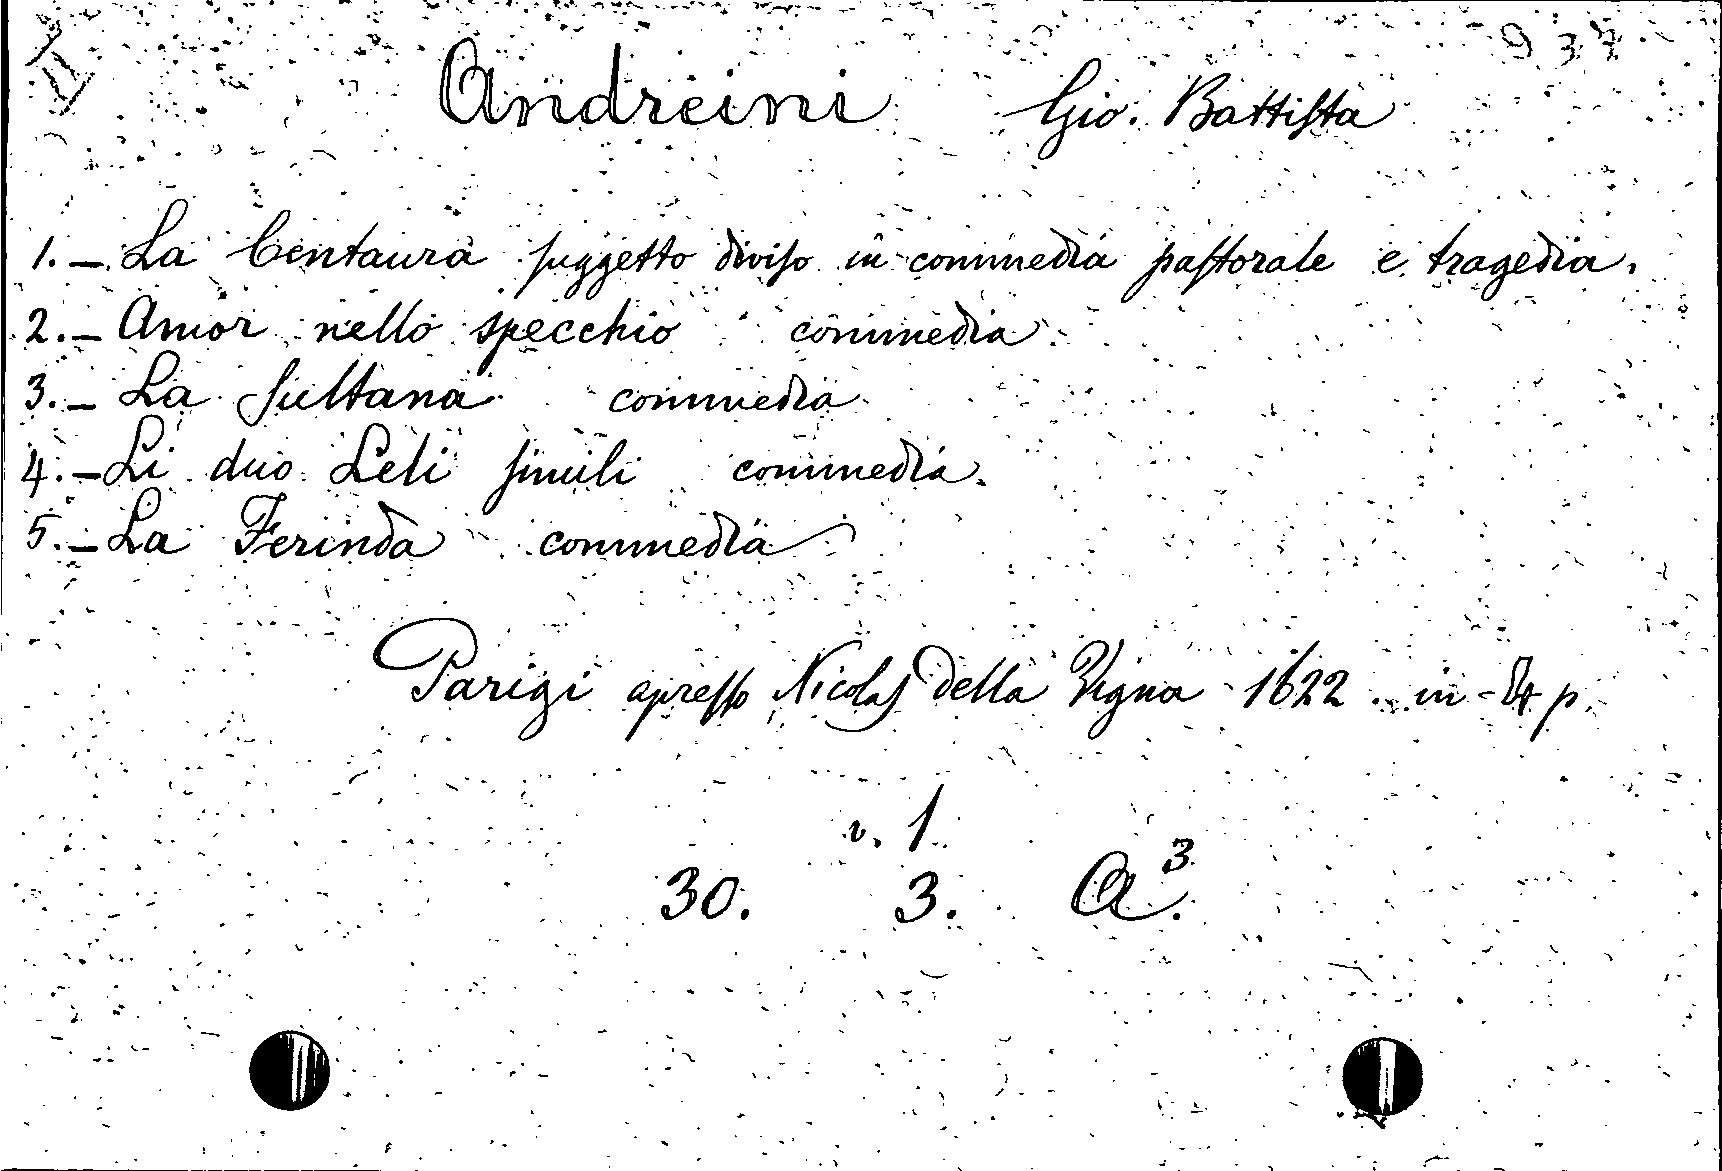 937
Andreini Gio. Battiſta
1. _ La Centaura ſuggetto diviſo in commedia paſtorale e tragedia.
2. _ Amor nello specchio commedia
3. _ La ſultana commedia
4. _ Li duo Leli ſimili commedia.
5. _ La Ferinda commedia
Parigi apreſſo Nicolas della Vigna 1622. in - p.
v. 1
30. 3. A³.